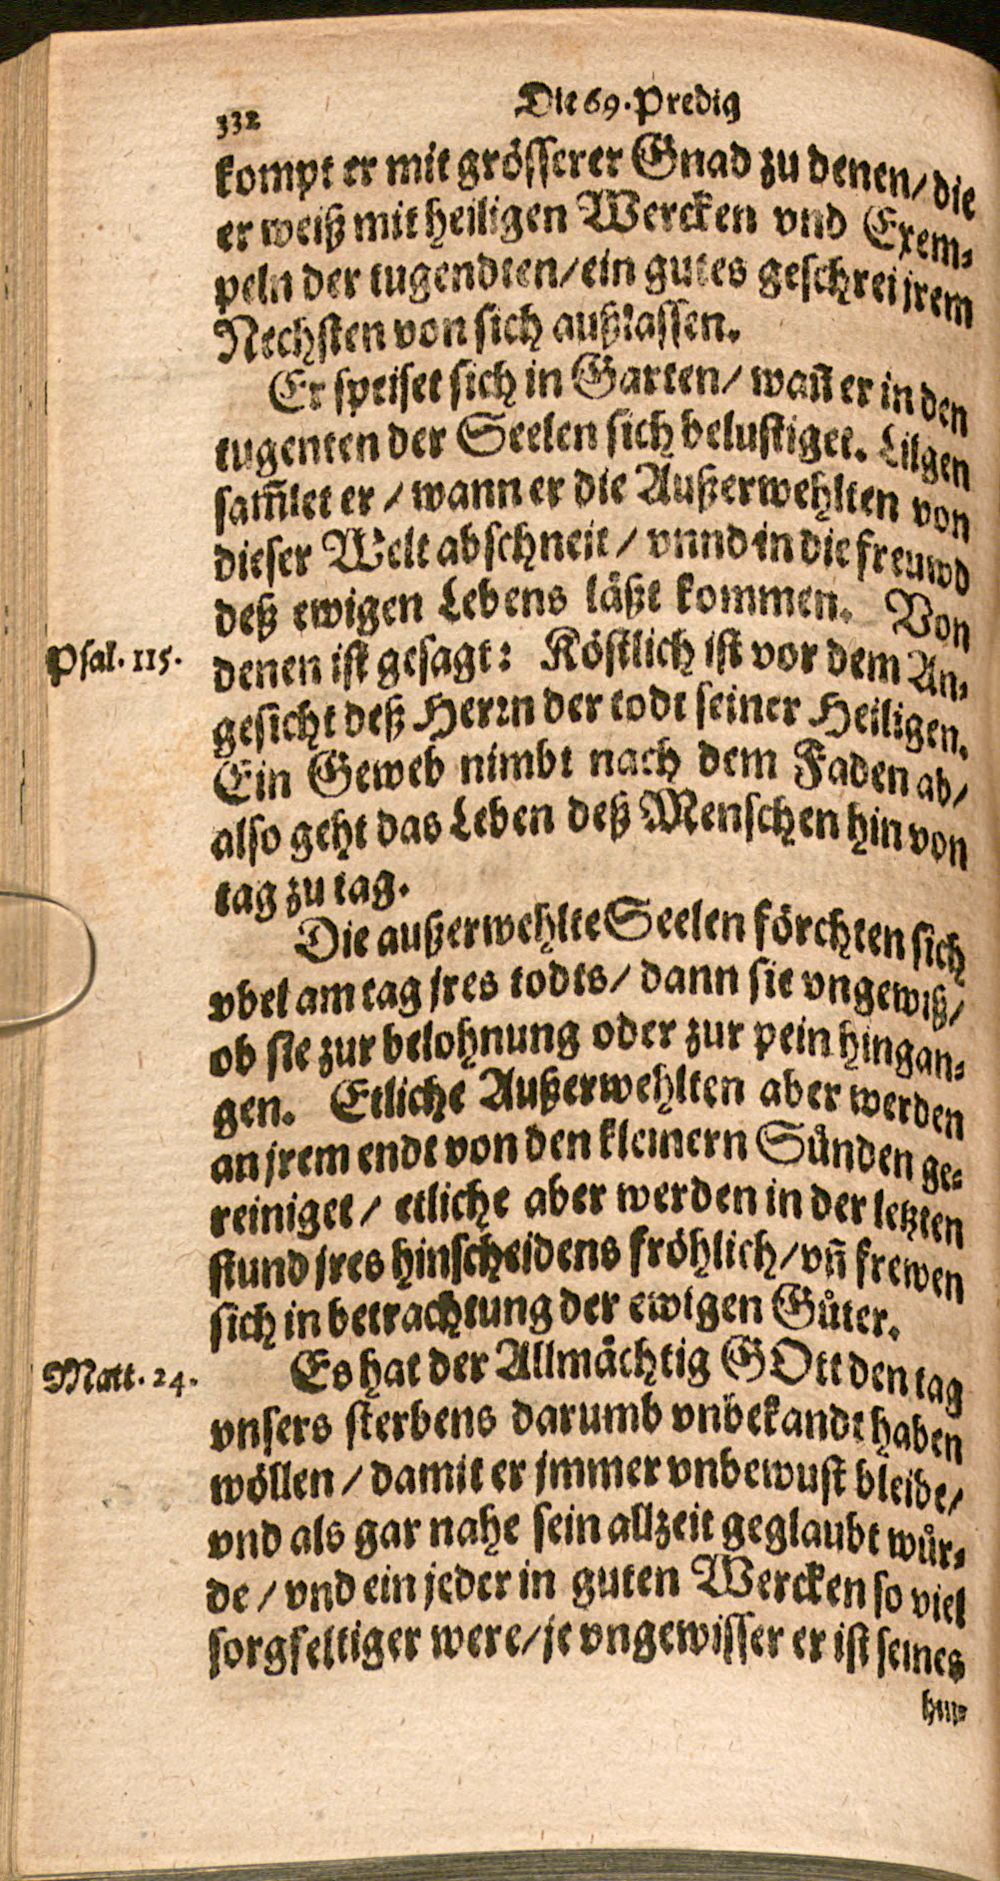 332
Die 69. Predig
kompt er mit grösserer Gnad zu denen/ die
er weiß mit heiligen Wercken vnd Exem-
peln der tugendten/ ein gutes geschrei jrem
Nechsten von sich außlassen.
Er speiset sich in Garten/ wañ er in den
tugenten der Seelen sich belustiget. Lilgen
sam̃let er / wann er die Außerwehlten von
dieser Welt abschneit / vnnd in die freuwd
deß ewigen Lebens läßt kommen. Von
Psal. 115.
denen ist gesagt: Köstlich ist vor dem An-
gesicht deß Herrn der todt seiner Heiligen.
Ein Geweb nimbt nach dem Faden ab/
also geht das Leben deß Menschen hin von
tag zu tag.
Die außerwehlte Seelen förchten sich
vbel am tag jres todts/ dann sie vngewiß/
ob sie zur belohnung oder zur pein hingan-
gen. Etliche Außerwehlten aber werden
an jrem ende von den kleinern Sünden ge-
reiniget / etliche aber werden in der letzten
stund jres hinscheidens fröhlich/ vñ frewen
sich in betrachtung der ewigen Güter.
Matt. 24.
Es hat der Allmächtig GOtt den tag
vnsers sterbens darumb vnbekandt haben
wöllen / damit er jmmer vnbewust bleibe/
vnd als gar nahe sein allzeit geglaubt wür-
de / vnd ein jeder in guten Wercken so viel
sorgfeltiger were/ je vngewisser er ist seines
hin-